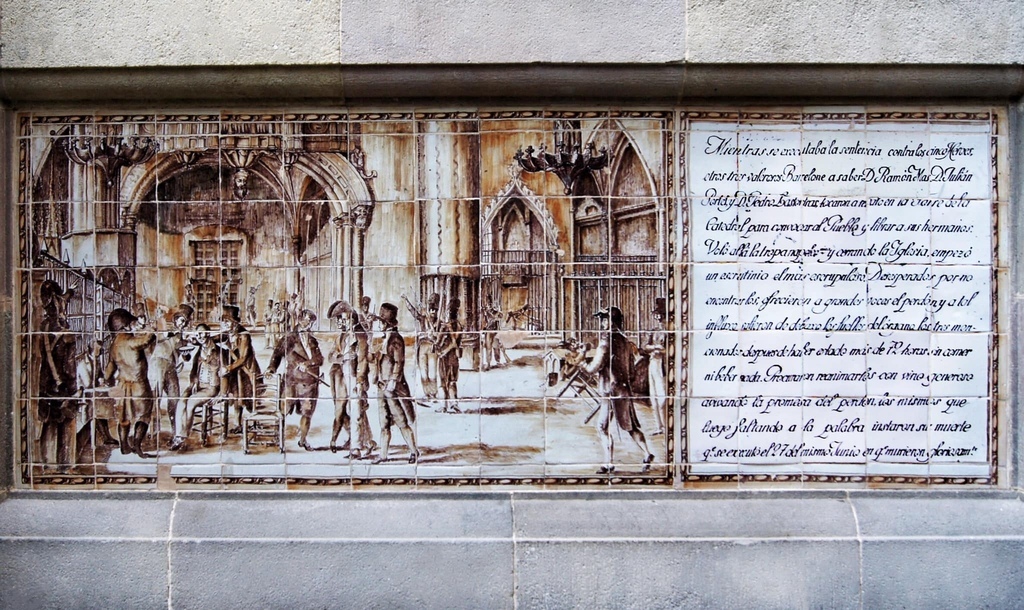 Mientras se executaba la sentencia contra los cinco Héroes,
otros tres valerosos Barcelone a saber D. Ramón Mas D. Julián
Portet y D. Pedro Lastortras tocaron a rebato en la torre de la
Catedral para convocar al Pueblo y librar a sus hermanos.
Voló allá la tropa napolª y cerrando la Iglesia, empezó
un escrutinio el más escrupuloso. Desesperados por no
encontrarlos, ofrecieron a grandes voces el perdón, y a tal
influxo salieron de debaxo los fuelles del órgano los tres men-
cionados después de haber estado más de 72 horas sin comer
ni beber nada. Procuraron reanimarlos con vino generoso
avivando la promesa del perdon, los mismos que
luego faltando a la palabra instaron su muerte
qᵉ se executó el 27 del mismo Junio en qᵉ murieron gloriosamᵗᵉ